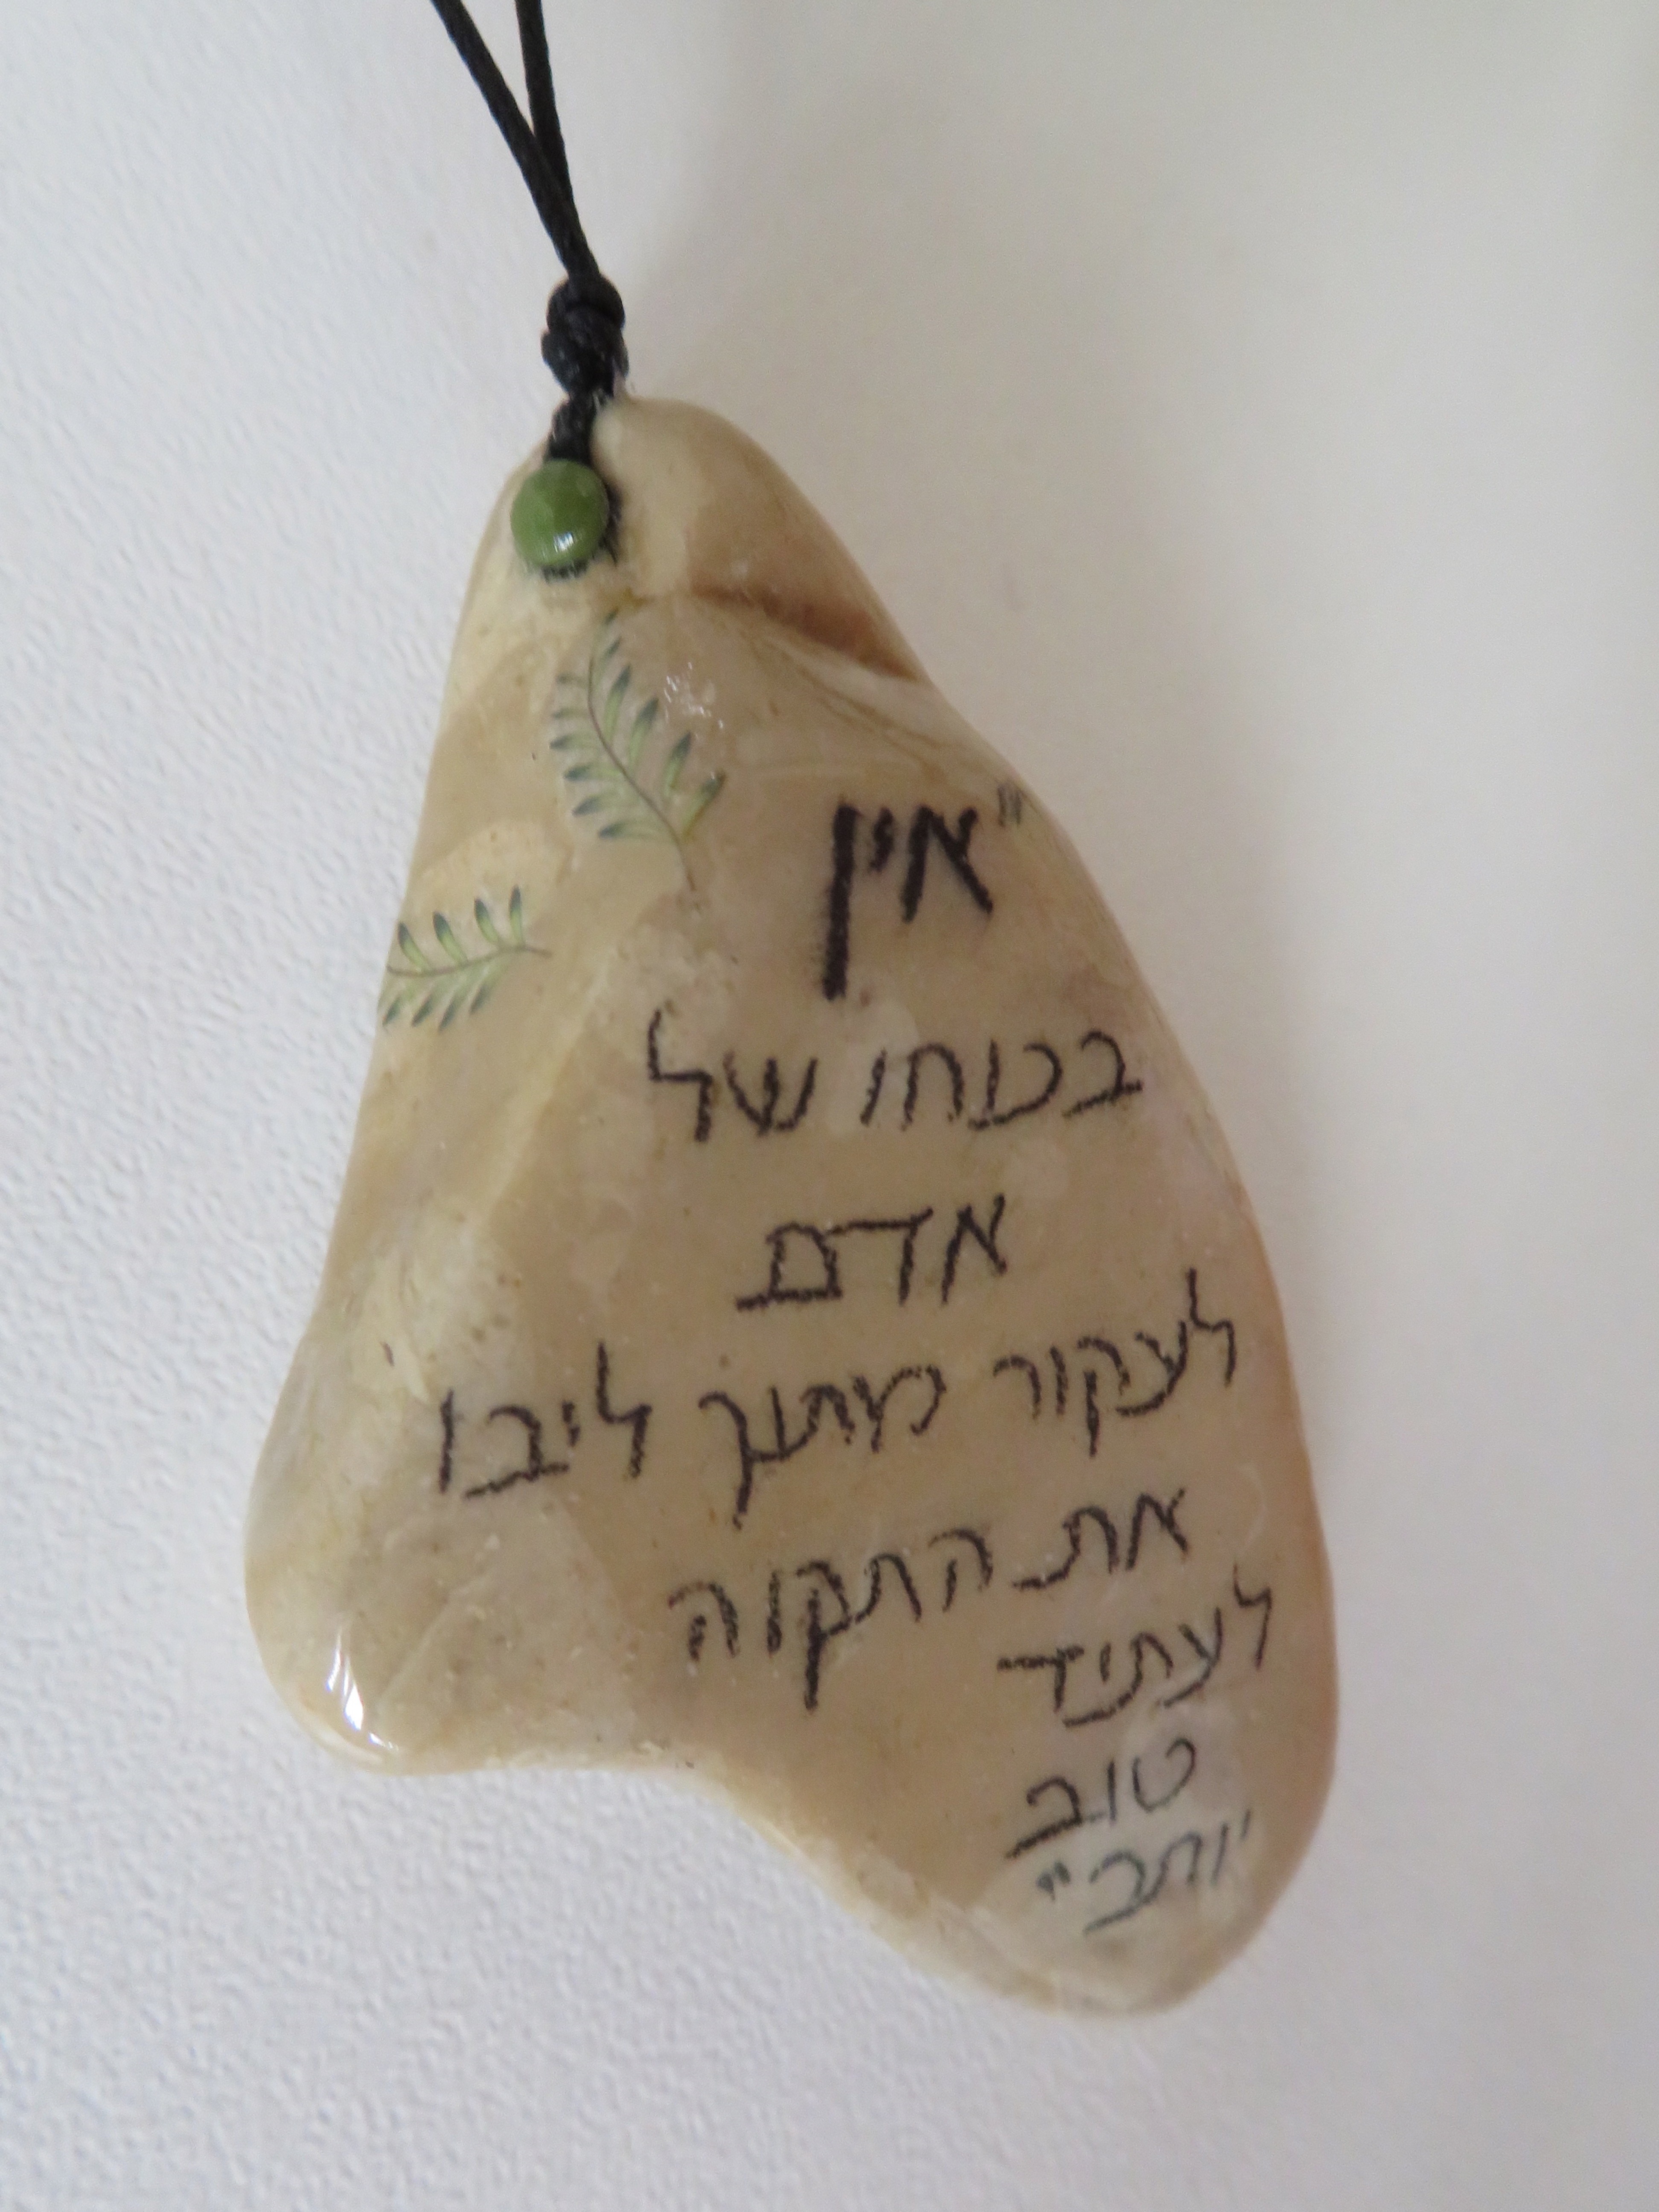 "אין
בכוחו של
אדם
לעקור מתוך ליבו
את התקוה
לעתיד
טוב
יותר"